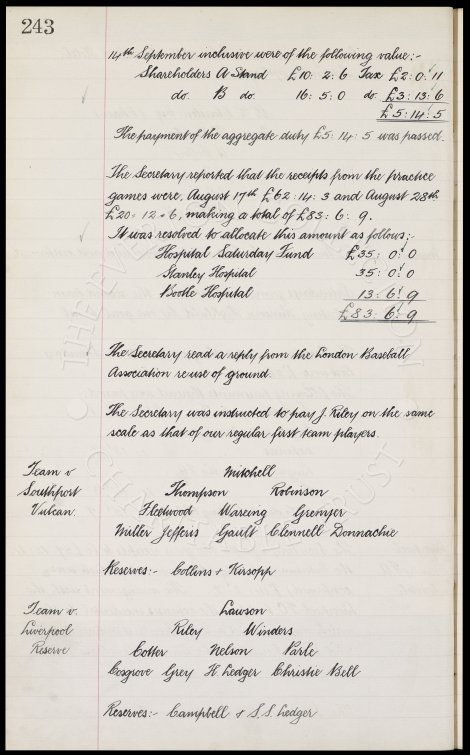 243
14th September inclusive were of the following value;-
Shareholders A Stand £10: 2: 6 Tax £2: 0: 11
do. B do. 16: 5: 0 do. £3: 13: 6
£5: 14: 5
The payment of the aggregate duty £5: 14: 5 was passed.
The Secretary reported that the receipts from the practice
games were, August 17th £62: 14: 3 and August 28th
£20 = 12 = 6, making a total of £83: 6: 9.
It was resolved to allocate this amount as follows;-
Hospital Saturday Fund £35: 0: 0
Stanley Hospital 35: 0: 0
Bootle Hospital 13: 6: 9
£83: 6: 9
The Secretary read a reply from the London Baseball
Association re use of ground
The Secretary was instructed to pay J. Riley on the same
scale as that of our regular first team players.
Team v Southport Vulcan.
Mitchell
Thompson Robinson
Fleetwood Wareing Grenyer
Miller Jefferis Gault Clennell Donnachie
Reserves:- Collins & Kirsopp
Team v. Liverpool Reserve
Lawson
Riley Winders
Cotter Nelson Parle
Cosgrove Grey H. Ledger Christie Bell
Reserves:- Campbell & S.S. Ledger